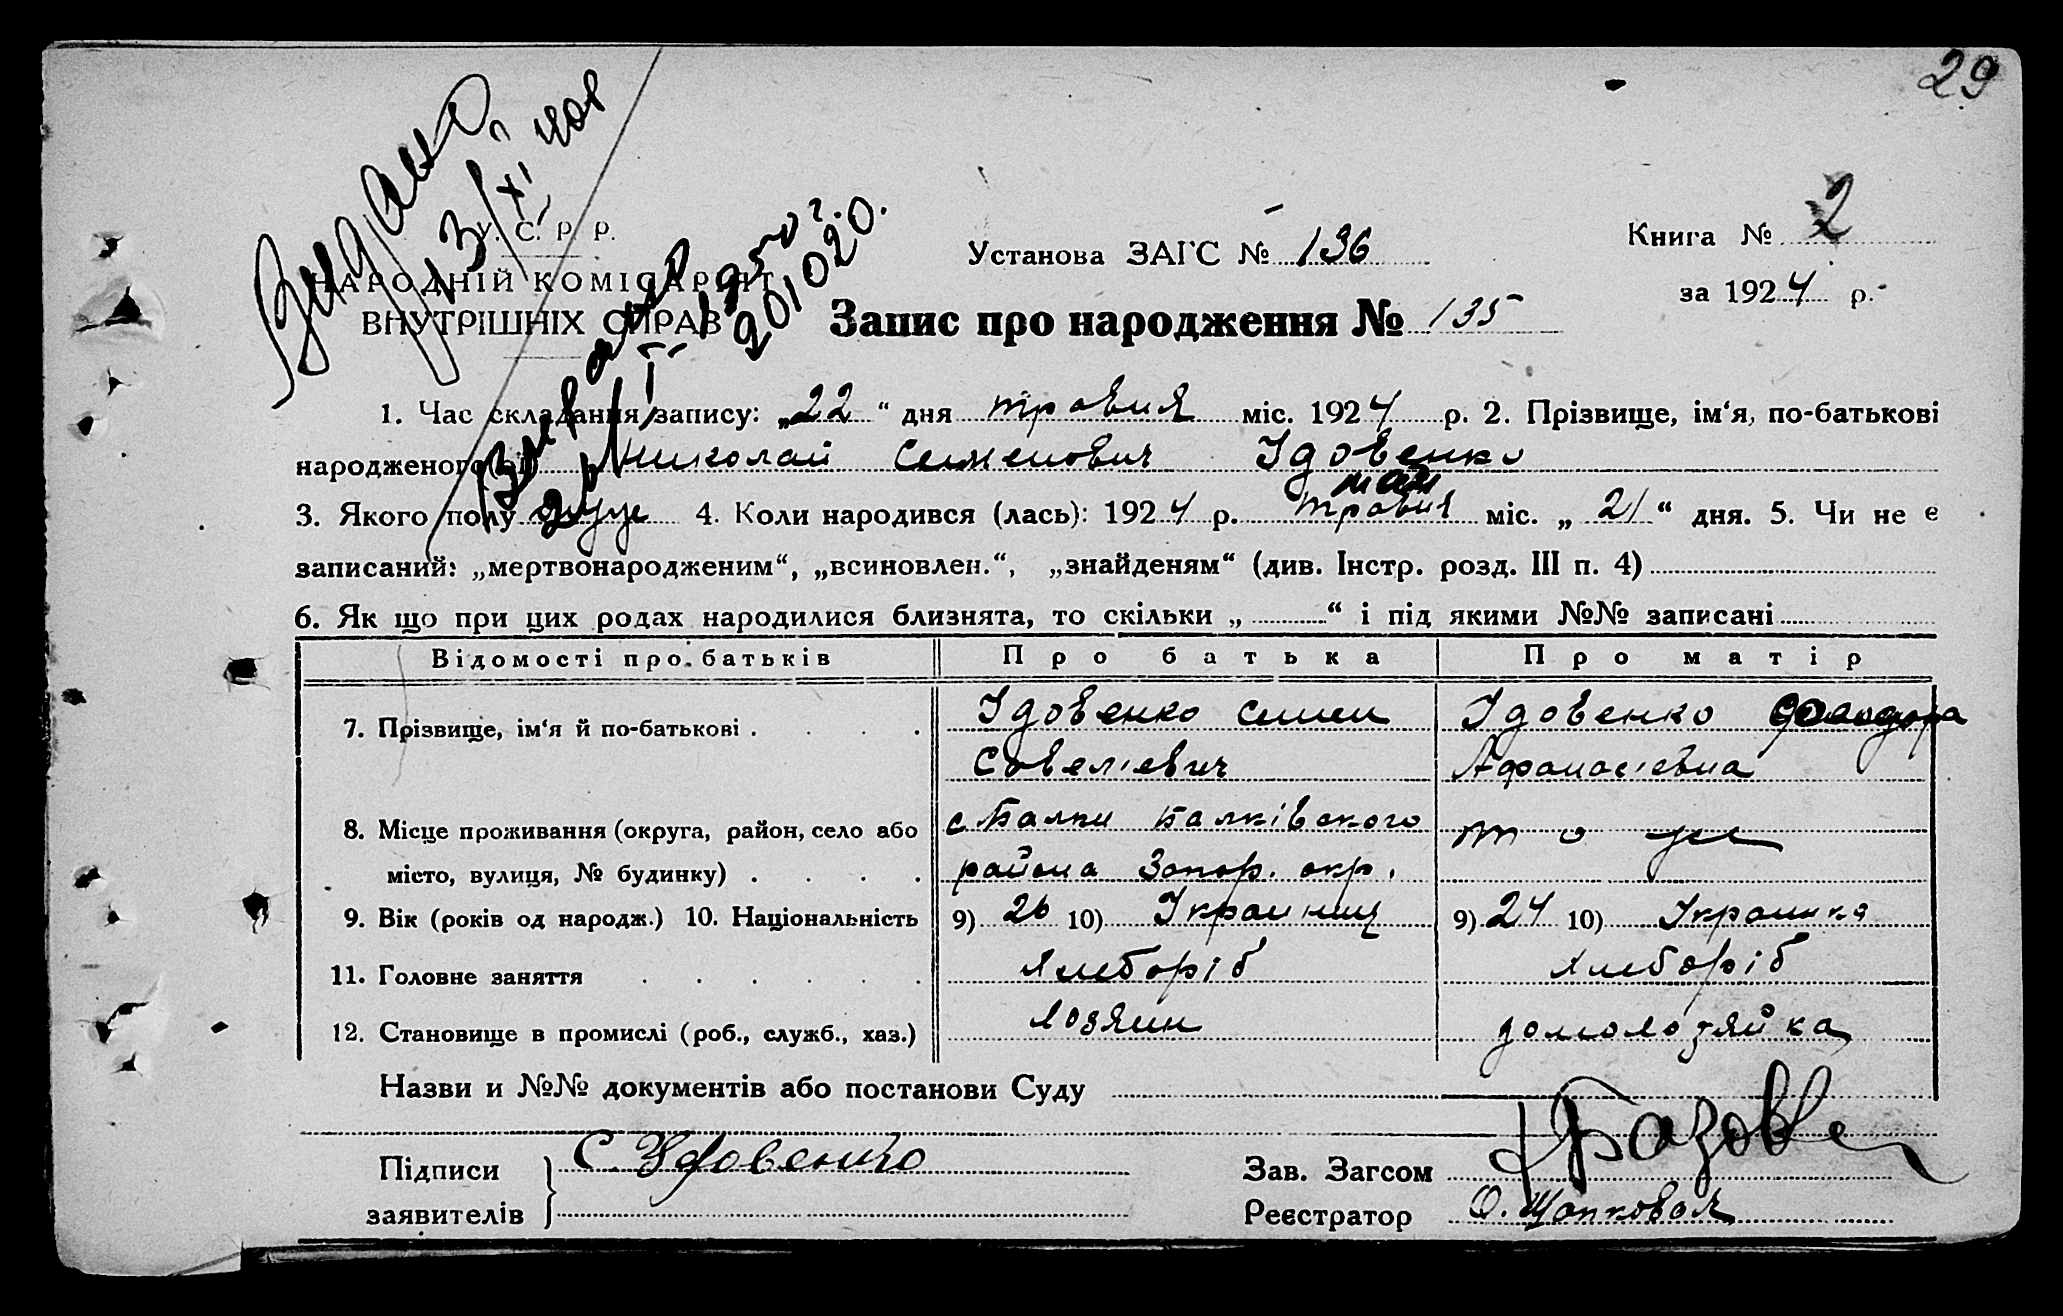 29
Видано
13/XI
У. С. Р. Р.
НАРОДНІЙ КОМІСАРІЯТ
ВНУТРІШНІХ СПРАВ
1950 г.
201020.
Установа ЗАГС № 136
Книга № 2
за 1924 р.
Запис про народження № 135
1. Час складання запису: „22“ дня травня міс. 1924 р. 2. Прізвище, ім‘я, по-батькові
народженого(ої) Николай Семенович Удовенко
мая
3. Якого полу муж 4. Коли народився (лась): 1924 р. травня міс. „21“ дня. 5. Чи не є
записаний: „мертвонародженим“, „всиновлен.“, „знайденям“ (див. Інстр. розд. III п. 4)
6. Як що при цих родах народилися близнята, то скільки „ “ і під якими №№ записані
Відомості про батьків Про батька Про матір
7. Прізвище, ім‘я й по-батькові . . . . Удовенко Семен Удовенко
Савелієвич Афанасієвна
8. Місце проживання (округа, район, село або с. Балки Балківського то же
місто, вулиця, № будинку) . . . . района Запор. окр.
9. Вік (років од народж.) 10. Національність 9) 26 10) Украинец 9) 24 10) Украинка
11. Головне заняття . . . . . Хлеборіб Хлеборіб
12. Становище в промислі (роб., служб., хаз.) Хозяин домохозяйка
Назви и №№ документів або постанови Суду
Підписи С. Удовенко Зав. Загсом
заявителів Реєстратор О.